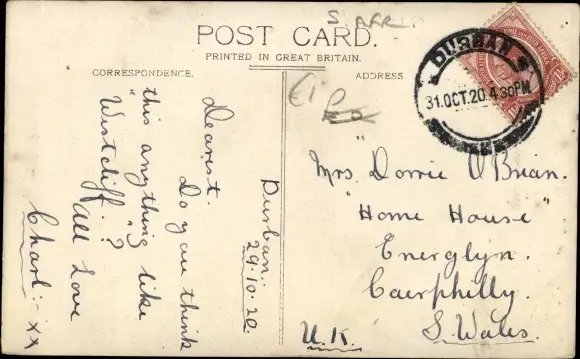 S. AFR.
POST CARD.
PRINTED IN GREAT BRITAIN.
CORRESPONDENCE.
ADDRESS
DURBAN
31.OCT.20.4 30PM
£1
Durban.
29.10.20.
Dearest.
Do you think
this anything like
"Westcliff"?
All Love
Charl:- xx
Mrs. Dorrie O'Brian.
"Home House"
Energlyn.
Caerphilly.
S. Wales.
U.K.